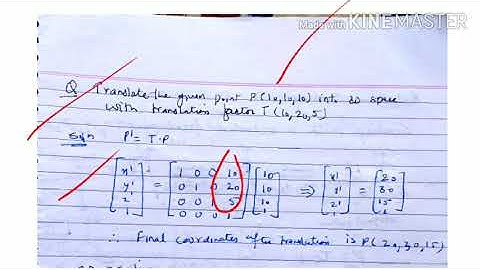 Made with KINEMASTER
Q Translate the given point P(10,10,10) into 3D space
with translation factor T(10,20,5)
Soln P' = T.P
[x' y' z' 1] = [1 0 0 10 0 1 0 20 0 0 1 5 0 0 0 1] [10 10 10 1] ⇒ [x' y' z' 1] = [20 30 15 1]
∴ Final coordinates after translation is P(20,30,15)